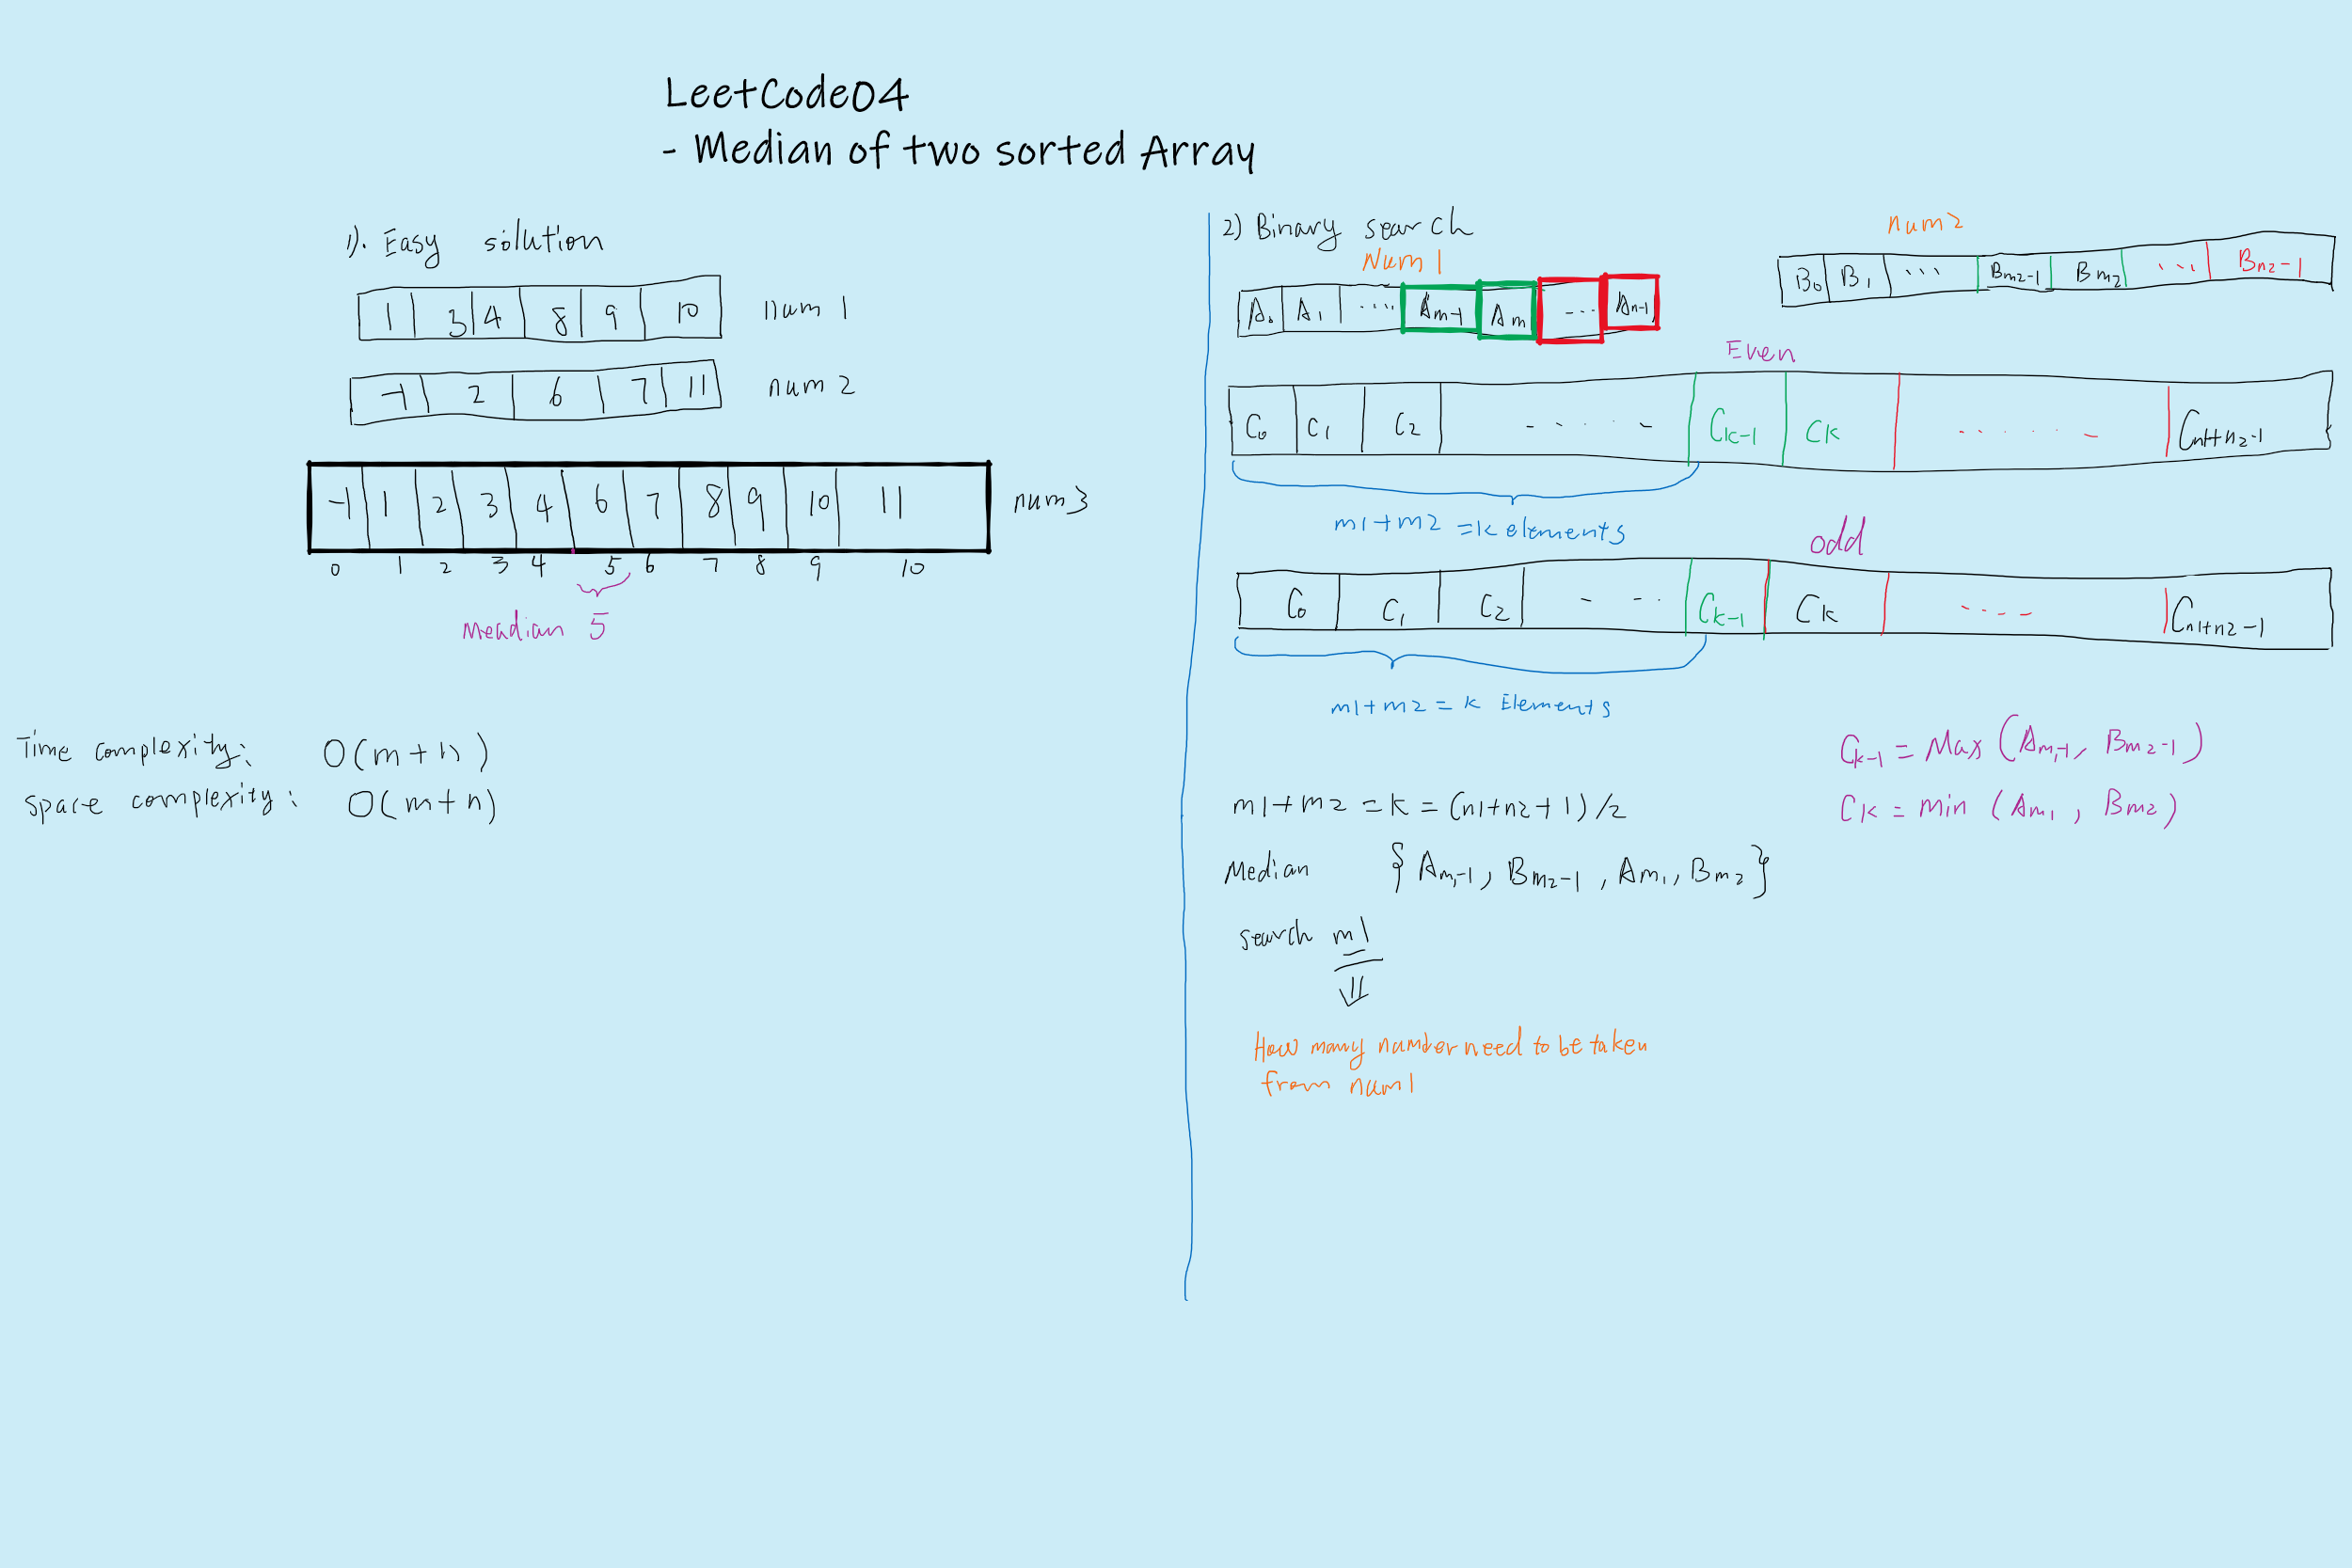 LeetCode04
- Median of two sorted Array
1). Easy solution
1 3 4 8 9 10 num 1
-1 2 6 7 11 num 2
-1 1 2 3 4 6 7 8 9 10 11 num3
0 1 2 3 4 5 6 7 8 9 10
Meadian 5
Time complexity: O(m+n)
Space complexity: O(m+n)
2) Binary search
Num 1
A0 A1 ..... Am-1 Am --- An-1
num2
B0 B1 ... Bm2-1 Bm2 ... Bn2-1
Even
C0 C1 C2 - · · · · - Ck-1 Ck - · · · · - Cn1+n2-1
m1+m2 = k elements
odd
C0 C1 C2 - - - · Ck-1 Ck - · · - - Cn1+n2-1
m1+m2 = k Elements
Ck-1 = Max (Am1-1, Bm2-1)
Ck = min (Am1, Bm2)
m1+m2 = k = (n1+n2+1)/2
Median { Am1-1, Bm2-1, Am1, Bm2 }
search m1
⇓
How many number need to be taken
from num1